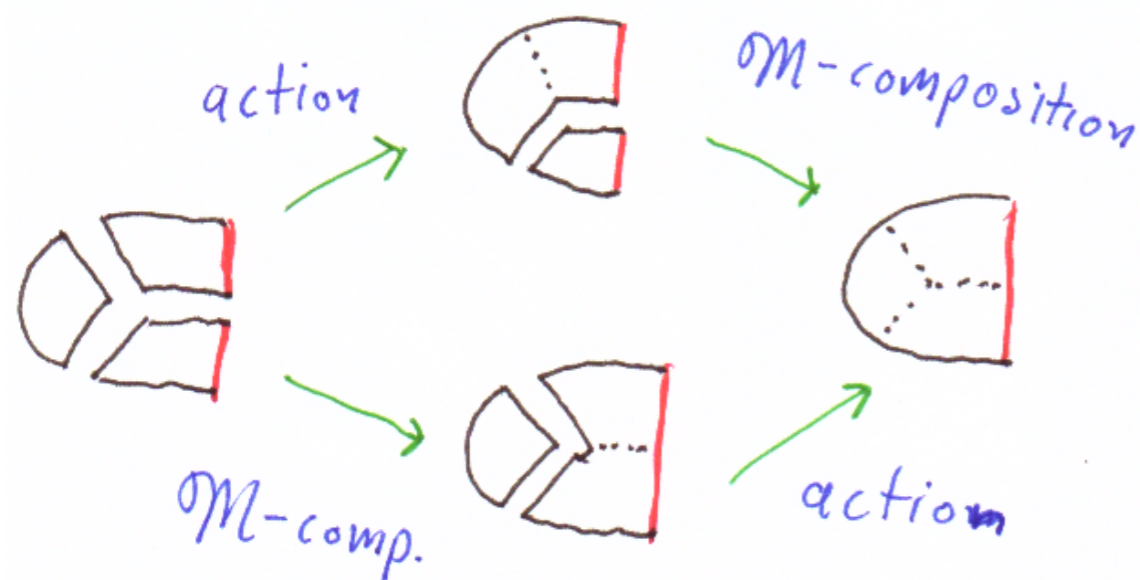 action
M-composition
M-comp.
action